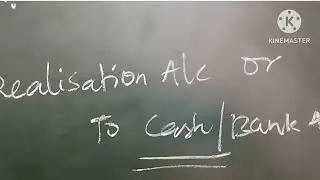 KINEMASTER
Realisation A/c Dr
To Cash/Bank A